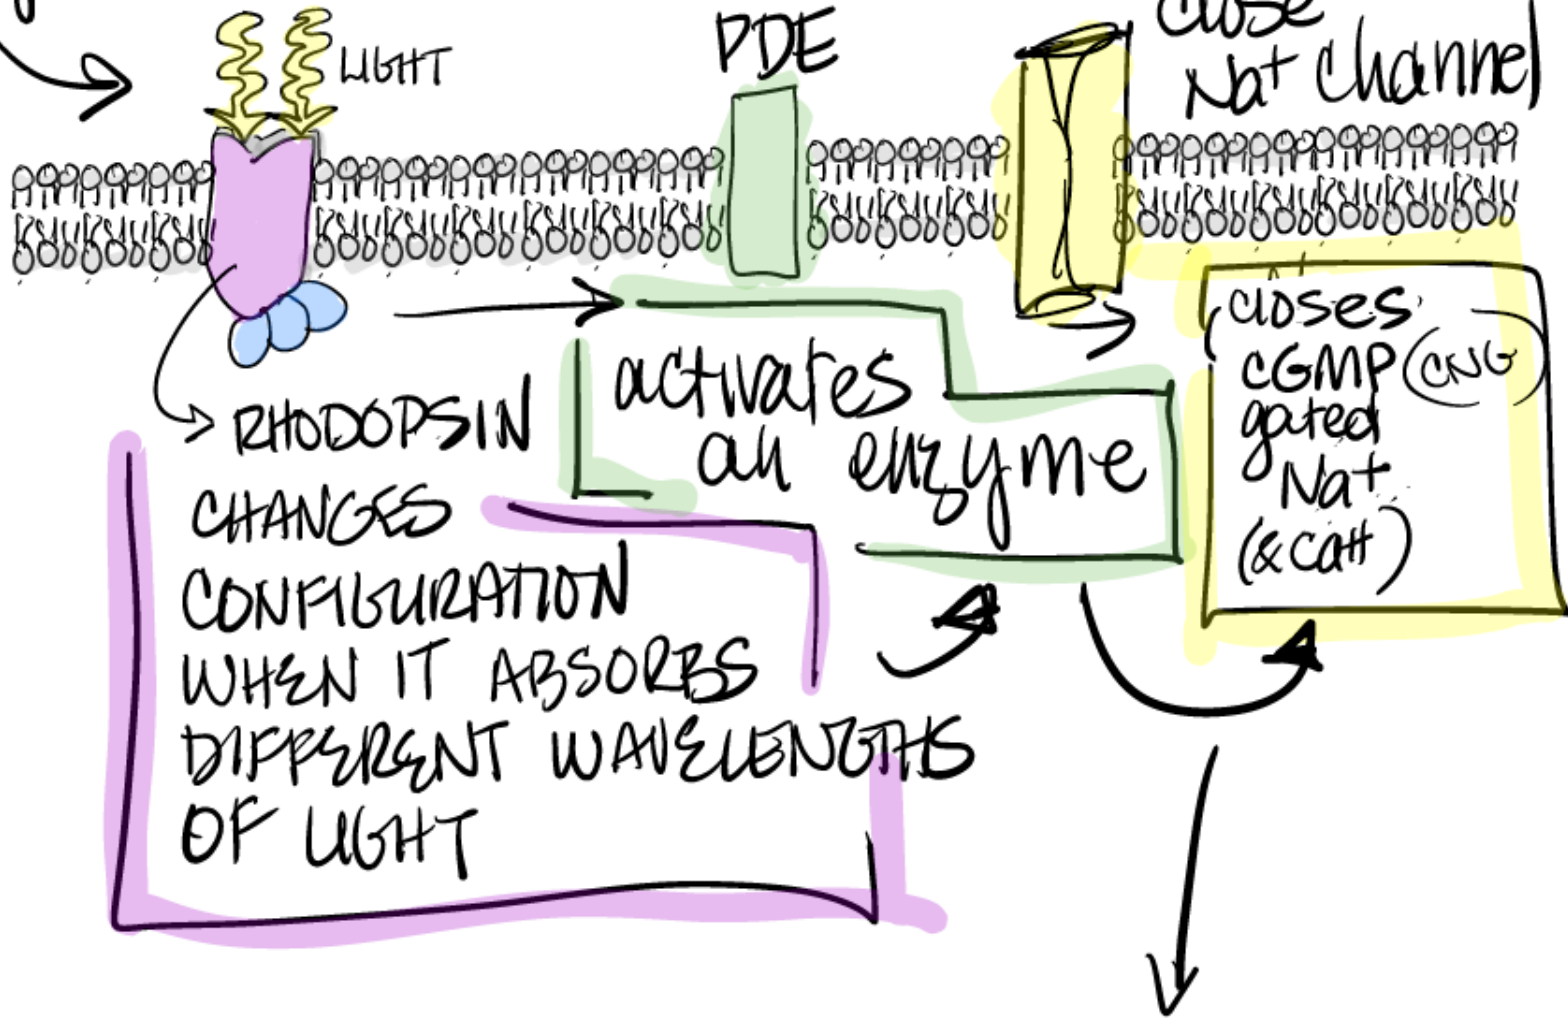 LIGHT
PDE
close
Na+ channel
RHODOPSIN
CHANGES
CONFIGURATION
WHEN IT ABSORBS
DIFFERENT WAVELENGTHS
OF LIGHT
activates
an enzyme
closes
cGMP (CNG)
gated
Na+
(& Ca++)